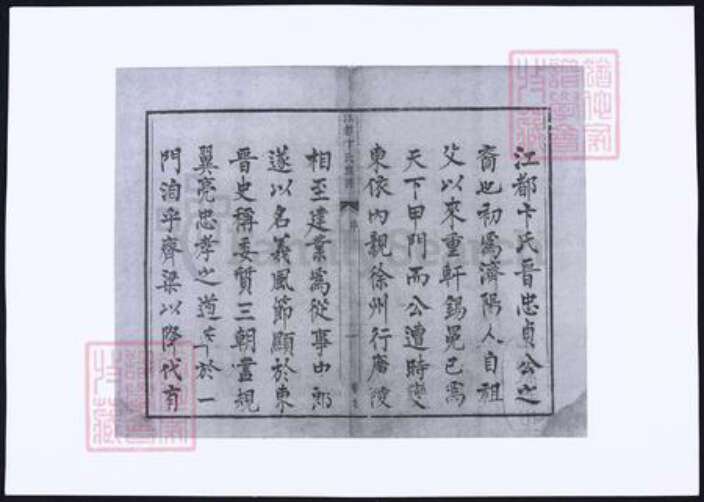 江都卞氏晉忠貞公之
裔也初爲濟陽人自祖
父以來重軒錫冕已爲
天下甲門而公遭時變
東依內親徐州行廣陵
江都卞氏族譜
序
一
相至建業爲從事中郎
遂以名義風節顯於東
晉史稱委質三朝盡規
翼亮忠孝之道萃於一
門洎乎齊梁以降代有